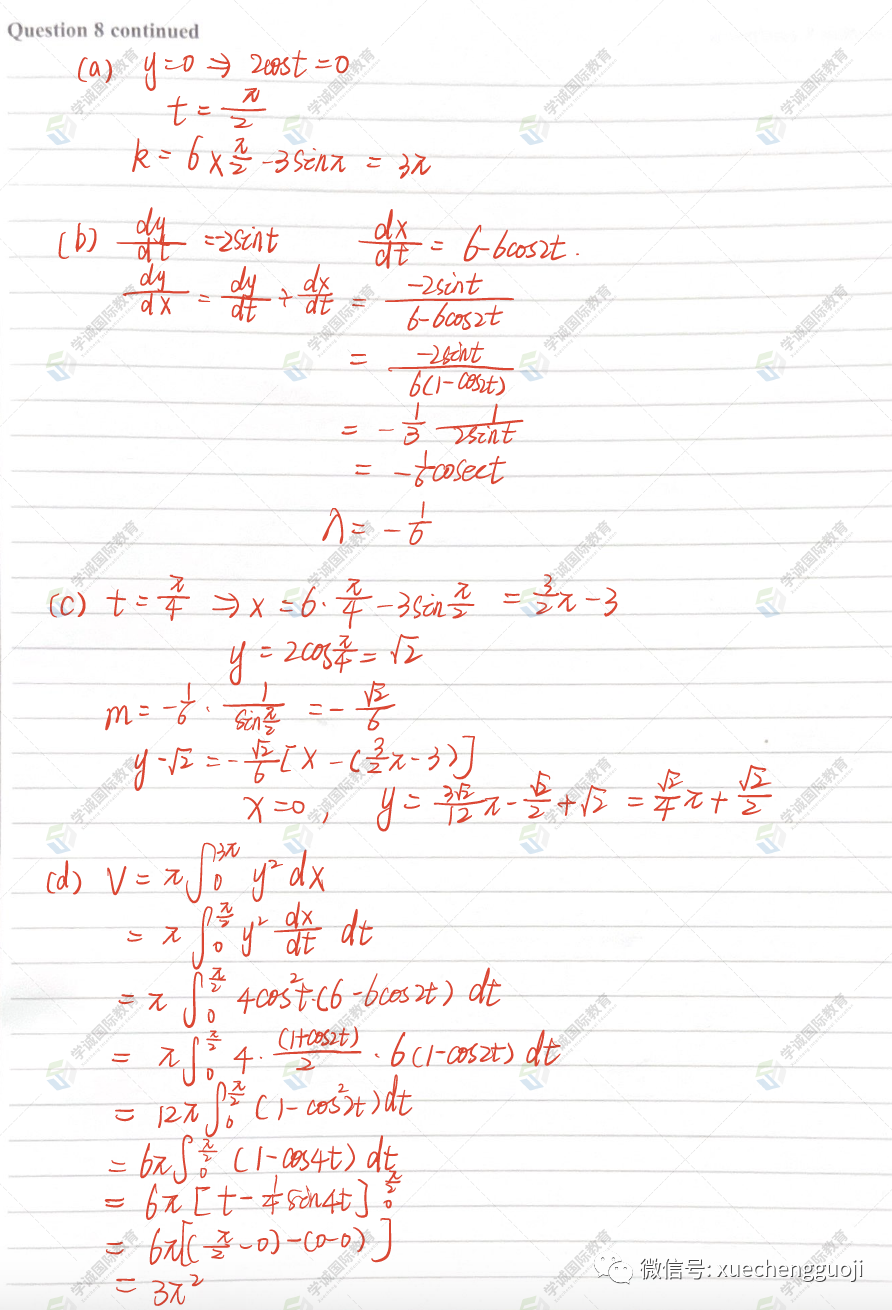 Question 8 continued
(a) y=0 ⇒ 2cost=0
t = π/2
k = 6×π/2 -3sinπ = 3π
(b) dy/dt = -2sint dx/dt = 6-6cos2t.
dy/dx = dy/dt ÷ dx/dt = -2sint/(6-6cos2t)
= -2sint/6(1-cos2t)
= -1/3 1/2sint
= -1/6 cosect
λ = -1/6
(c) t = π/4 ⇒ x = 6·π/4 -3sin π/2 = 3/2 π -3
y = 2cos π/4 = √2
m = -1/6 · 1/sin π/2 = -√2/6
y-√2 = -√2/6 [x-(3/2 π-3)]
x=0, y = 3√2/12 π - √2/2 + √2 = √2/4 π + √2/2
(d) V = π∫₀^3π y² dx
= π∫₀^π/2 y² dx/dt dt
= π∫₀^π/2 4cos²t·(6-6cos2t) dt
= π∫₀^π/2 4·(1+cos2t)/2 · 6(1-cos2t) dt
= 12π∫₀^π/2 (1-cos²2t) dt
= 6π∫₀^π/2 (1-cos4t) dt
= 6π [t - 1/4 sin4t]₀^π/2
= 6π[(π/2 -0)-(0-0)]
= 3π²
微信号: xuechengguoji
学诚国际教育